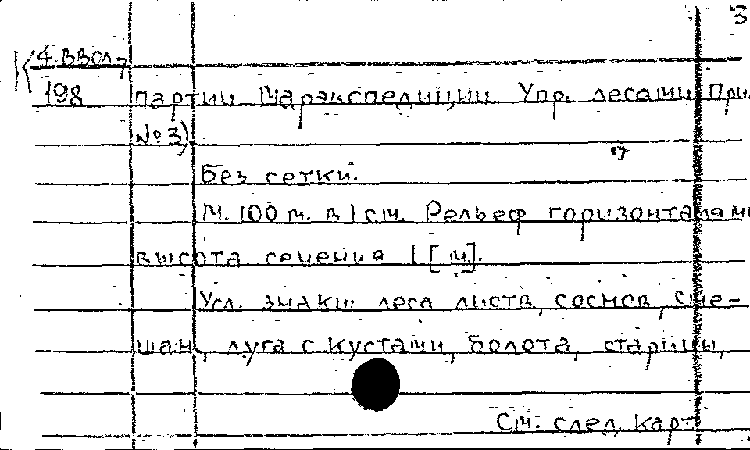 3
4. ввол
198 партии Марэкспедиции Упр. лесами При
№ 3)
Без сетки.
М. 100 м. в 1 см. Рельеф горизонталями
высота сечения 1 [м].
Усл. знаки: леса листв, соснов, сме-
шан, луга с кустами, болота, старицы,
См. след. карт